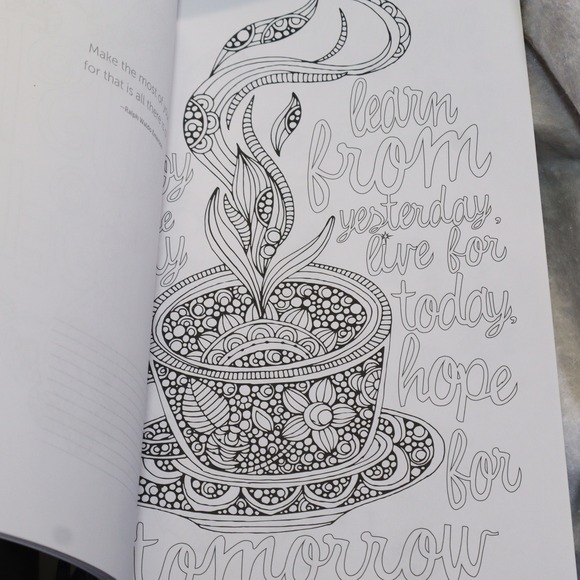 Make the most of
for that is all there
–Ralph Waldo
learn
from
yesterday,
live for
today,
hope
for
tomorrow